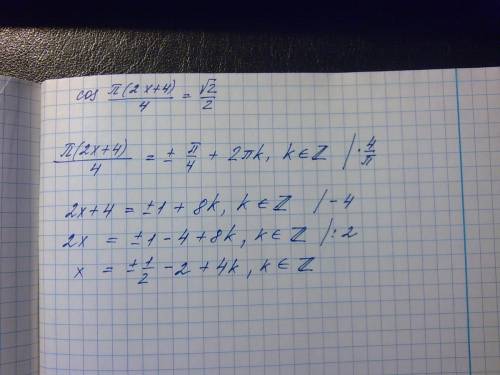 cos π(2x+4)/4 = √2/2
π(2x+4)/4 = ± π/4 + 2πk, k∈ℤ |· 4/π
2x+4 = ±1 + 8k, k∈ℤ |-4
2x = ±1 - 4 + 8k, k∈ℤ |:2
x = ±1/2 - 2 + 4k, k∈ℤ